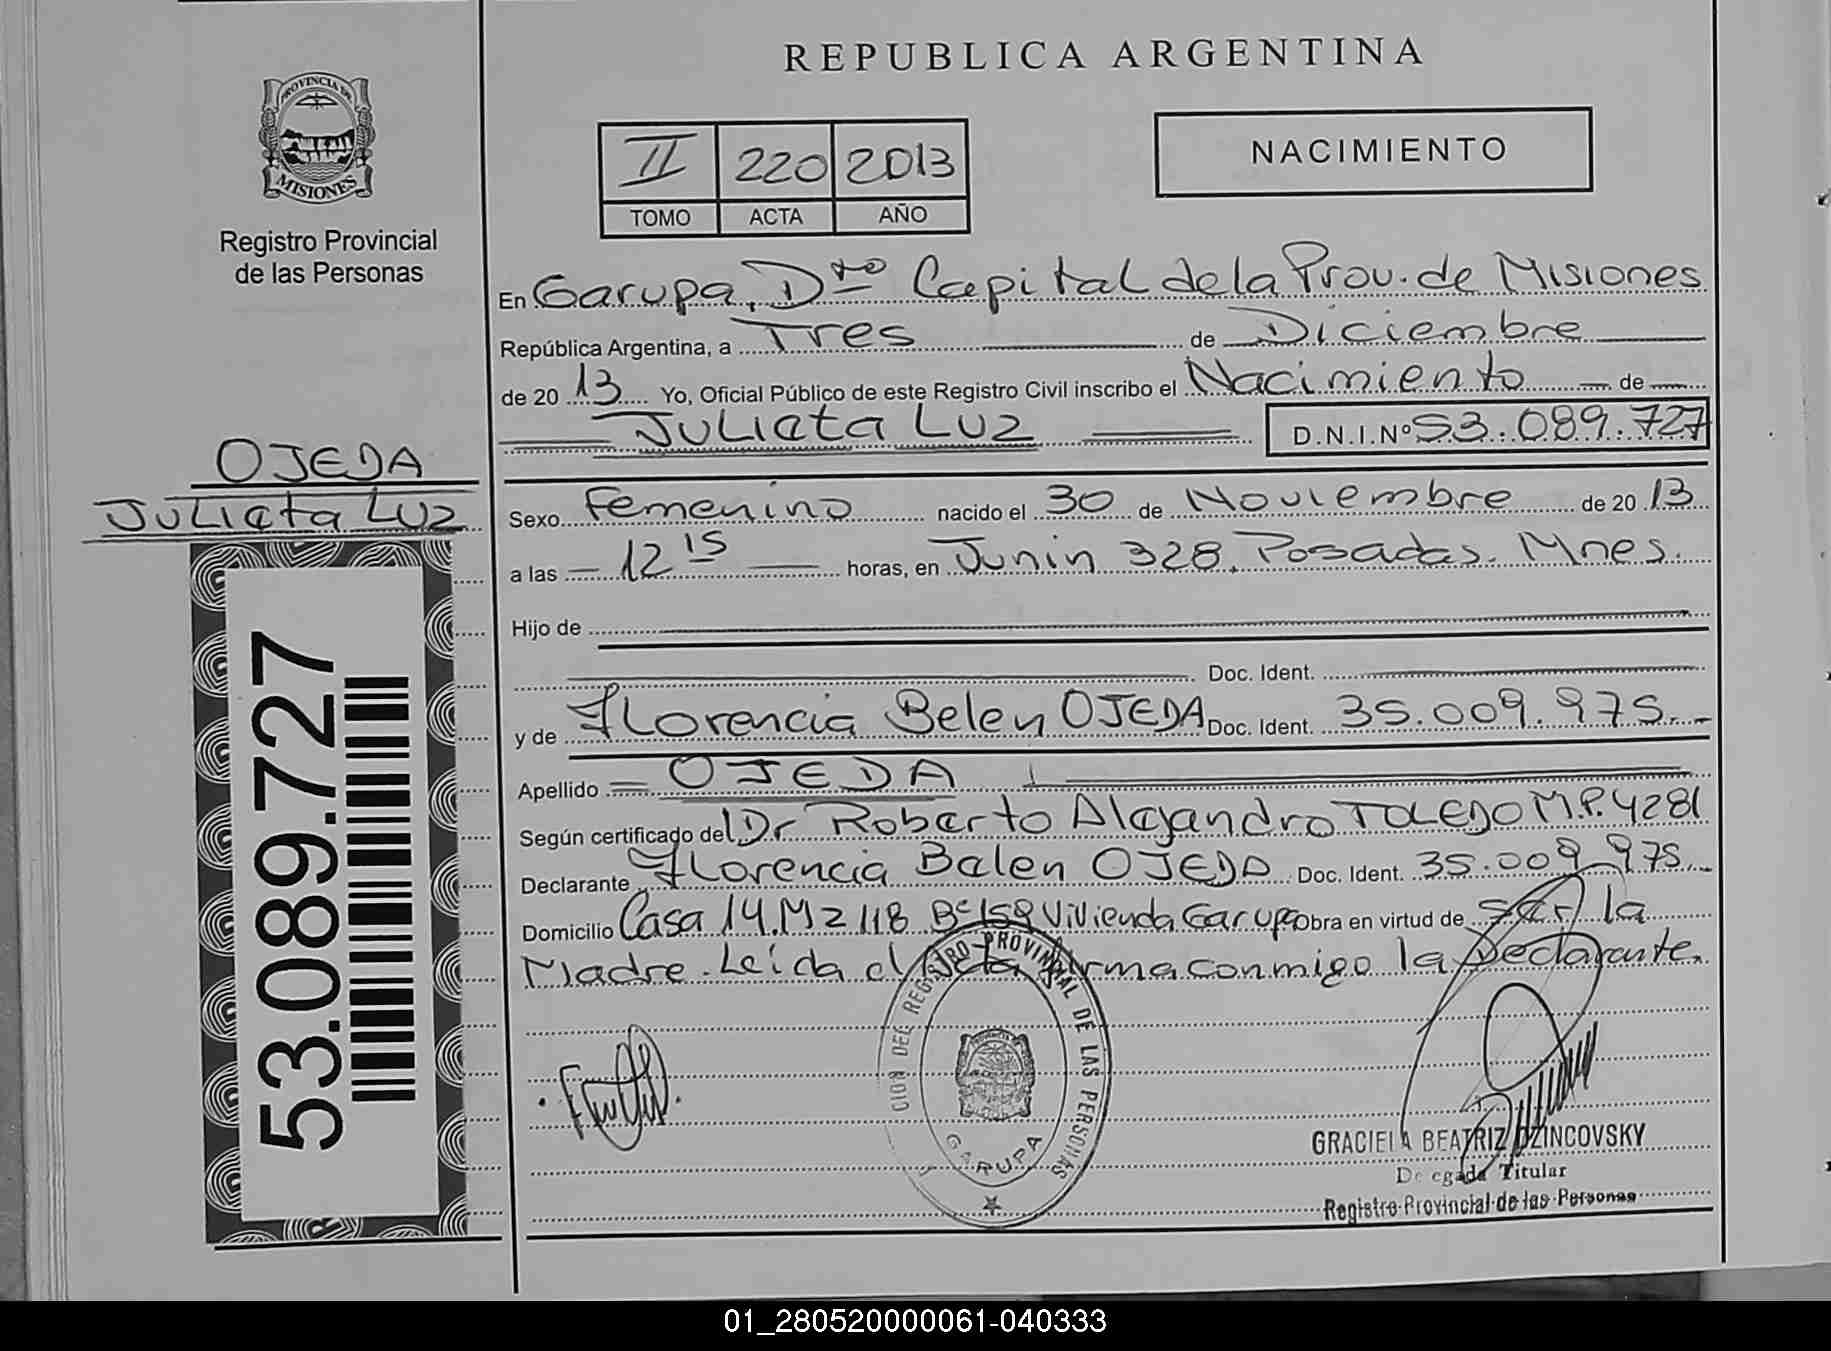 REPUBLICA ARGENTINA
PROVINCIA DE
MISIONES
Registro Provincial
de las Personas
II 220 2013
TOMO ACTA AÑO
NACIMIENTO
En Garupa, Dto Capital de la Prov. de Misiones
República Argentina, a Tres de Diciembre
de 20 13 Yo, Oficial Público de este Registro Civil inscribo el Nacimiento de
Julieta Luz D.N.I.Nº 53.089.727
OJEDA
Julieta Luz
Sexo Femenino nacido el 30 de Noviembre de 20 13
a las 12 15 horas, en Junin 328. Posadas. Mnes.
Hijo de
Doc. Ident.
y de Florencia Belen OJEDA Doc. Ident. 35.009.975.-
Apellido OJEDA
Según certificado del Dr Roberto Alejandro TOLEDO M.P. 4281
Declarante Florencia Belen OJEDA Doc. Ident. 35.009.975.-
Domicilio Casa 14. Mz 118 Bº 159 Vivienda Garupa Obra en virtud de Ser la
Madre. Leida el Acta firma conmigo la Declarante.
53.089.727
CION DEL REGISTRO PROVINCIAL DE LAS PERSONAS
GARUPA
GRACIELA BEATRIZ DZINCOVSKY
Delegada Titular
Registro Provincial de las Personas
01_280520000061-040333